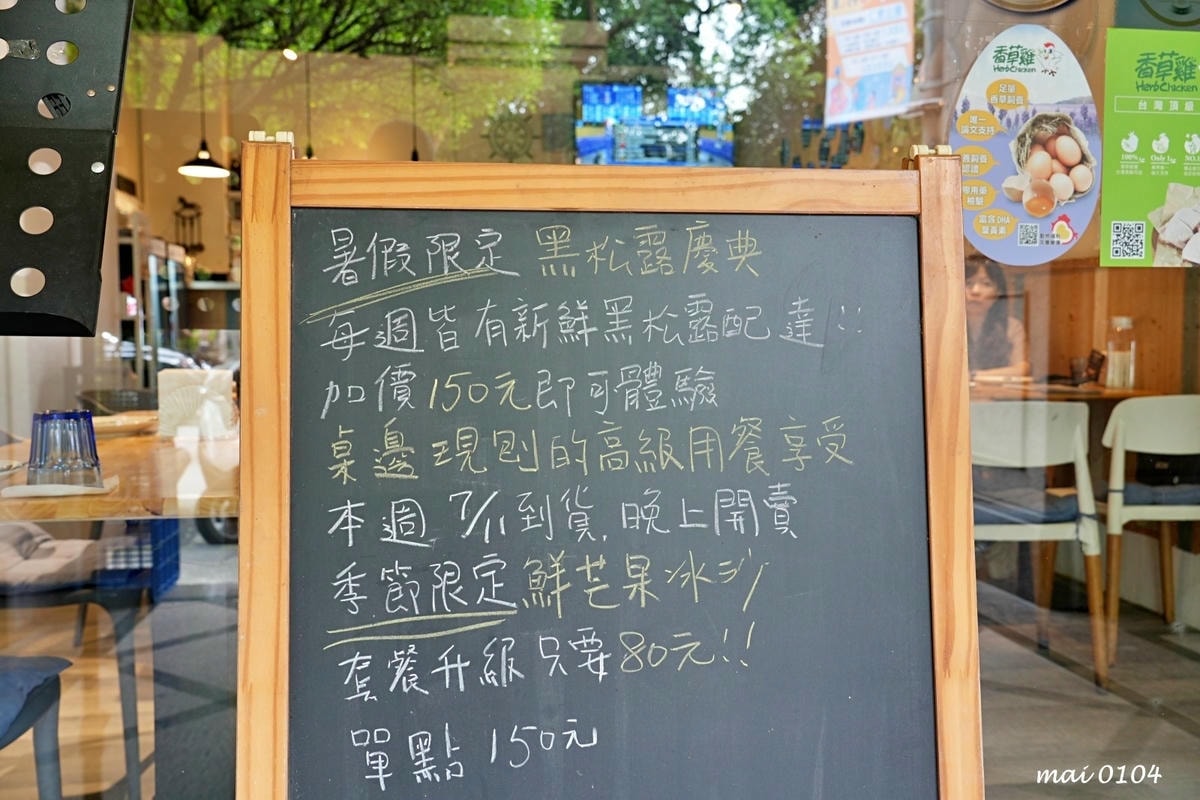 暑假限定 黑松露慶典
每週皆有新鮮黑松露配達!!
加價150元即可體驗
桌邊現刨的高級用餐享受
本週 7/11到貨,晚上開賣
季節限定鮮芒果冰沙
套餐升級只要80元!!
單點 150元
香草雞
HerbChicken
足量
香草飼養
唯一
論文支持
富含DHA
葉黃素
香草雞
HerbChicken
台灣頂級
mai 0104